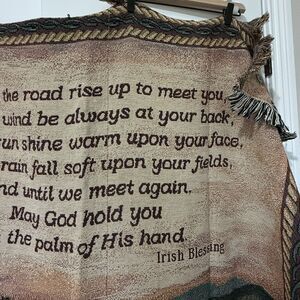 the road rise up to meet you,
wind be always at your back,
un shine warm upon your face,
rain fall soft upon your fields,
nd until we meet again.
May God hold you
the palm of His hand.
Irish Blessing